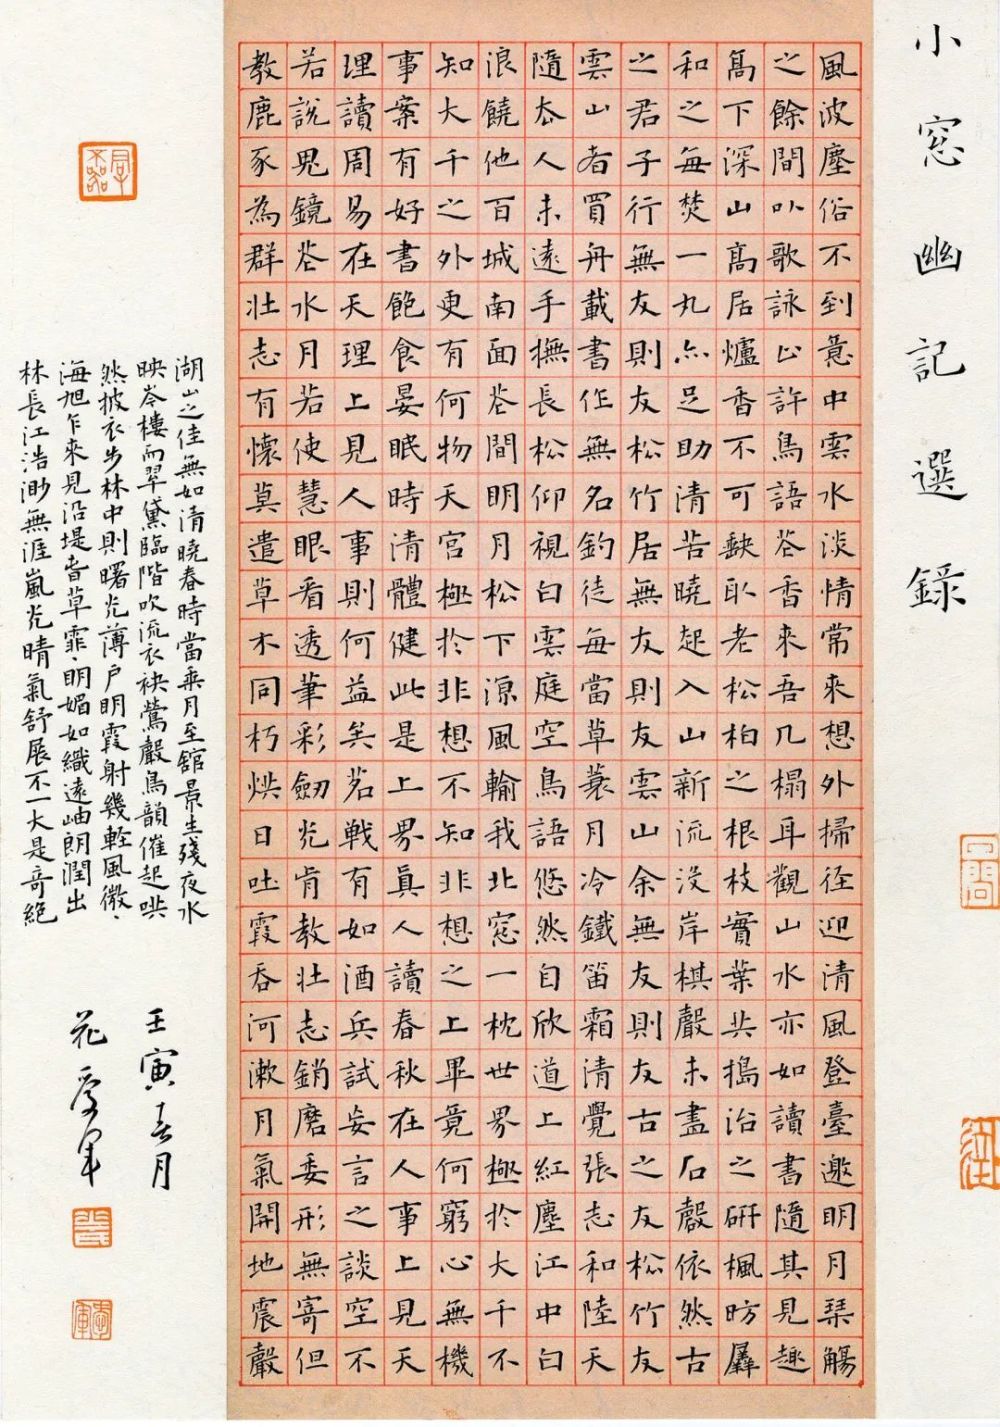 小窓幽記選錄
風波塵俗不到意中雲水淡情常來想外掃徑迎清風登臺邀明月琹觴
之餘間以歌詠止許鳥語花香來吾几榻耳觀山水亦如讀書隨其見趣
高下深山高居爐香不可缺取老松柏之根枝實葉共搗治之研楓昉羼
和之每焚一丸亦足助清苦曉起入山新流沒岸棋聲未盡石磬依然古
之君子行無友則友松竹居無友則友雲山余無友則友古之友松竹友
雲山者買舟載書作無名釣徒每當草蓑月冷鐵笛霜清覺張志和陸天
隨去人未遠手撫長松仰視白雲庭空鳥語悠然自欣道上紅塵江中白
浪饒他百城南面花間明月松下涼風輸我北窓一枕世界極於大千不
知大千之外更有何物天宮極於非想不知非想之上畢竟何窮心無機
事案有好書飽食晏眠時清體健此是上界真人讀春秋在人事上見天
理讀周易在天理上見人事則何益矣茗戰有如酒兵試妄言之談空不
若說鬼鏡花水月若使慧眼看透筆彩劍光肯教壯志銷磨委形無寄但
教鹿豕為群壯志有懷莫遣草木同朽烘日吐霞吞河漱月氣開地震聲
湖山之佳無如清曉春時當乘月至館景生殘夜水
映岑樓而翠黛臨階吹流衣袂鶯聲鳥韻催起哄
然披衣步林中則曙光薄戶明霞射幾輕風微〻
海旭乍來見沿堤春草霏〻明媚如織遠岫朗潤出
林長江浩渺無涯嵐光晴氣舒展不一大是奇絕
壬寅春月
花愛軍